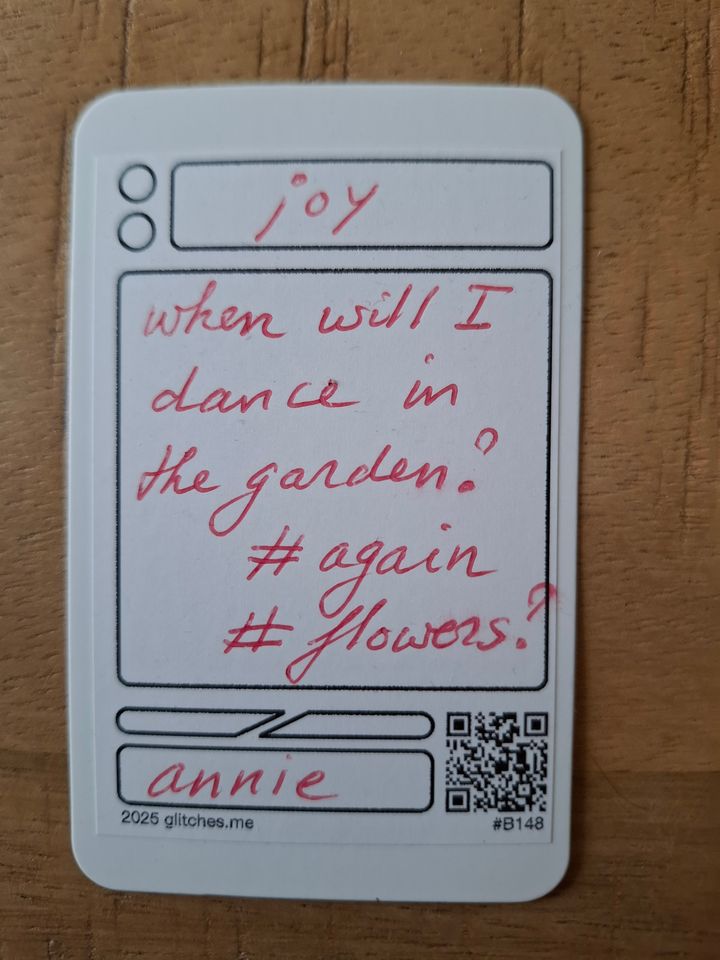 joy
when will I
dance in
the garden?
# again
# flowers.?
annie
2025 glitches.me
#B148